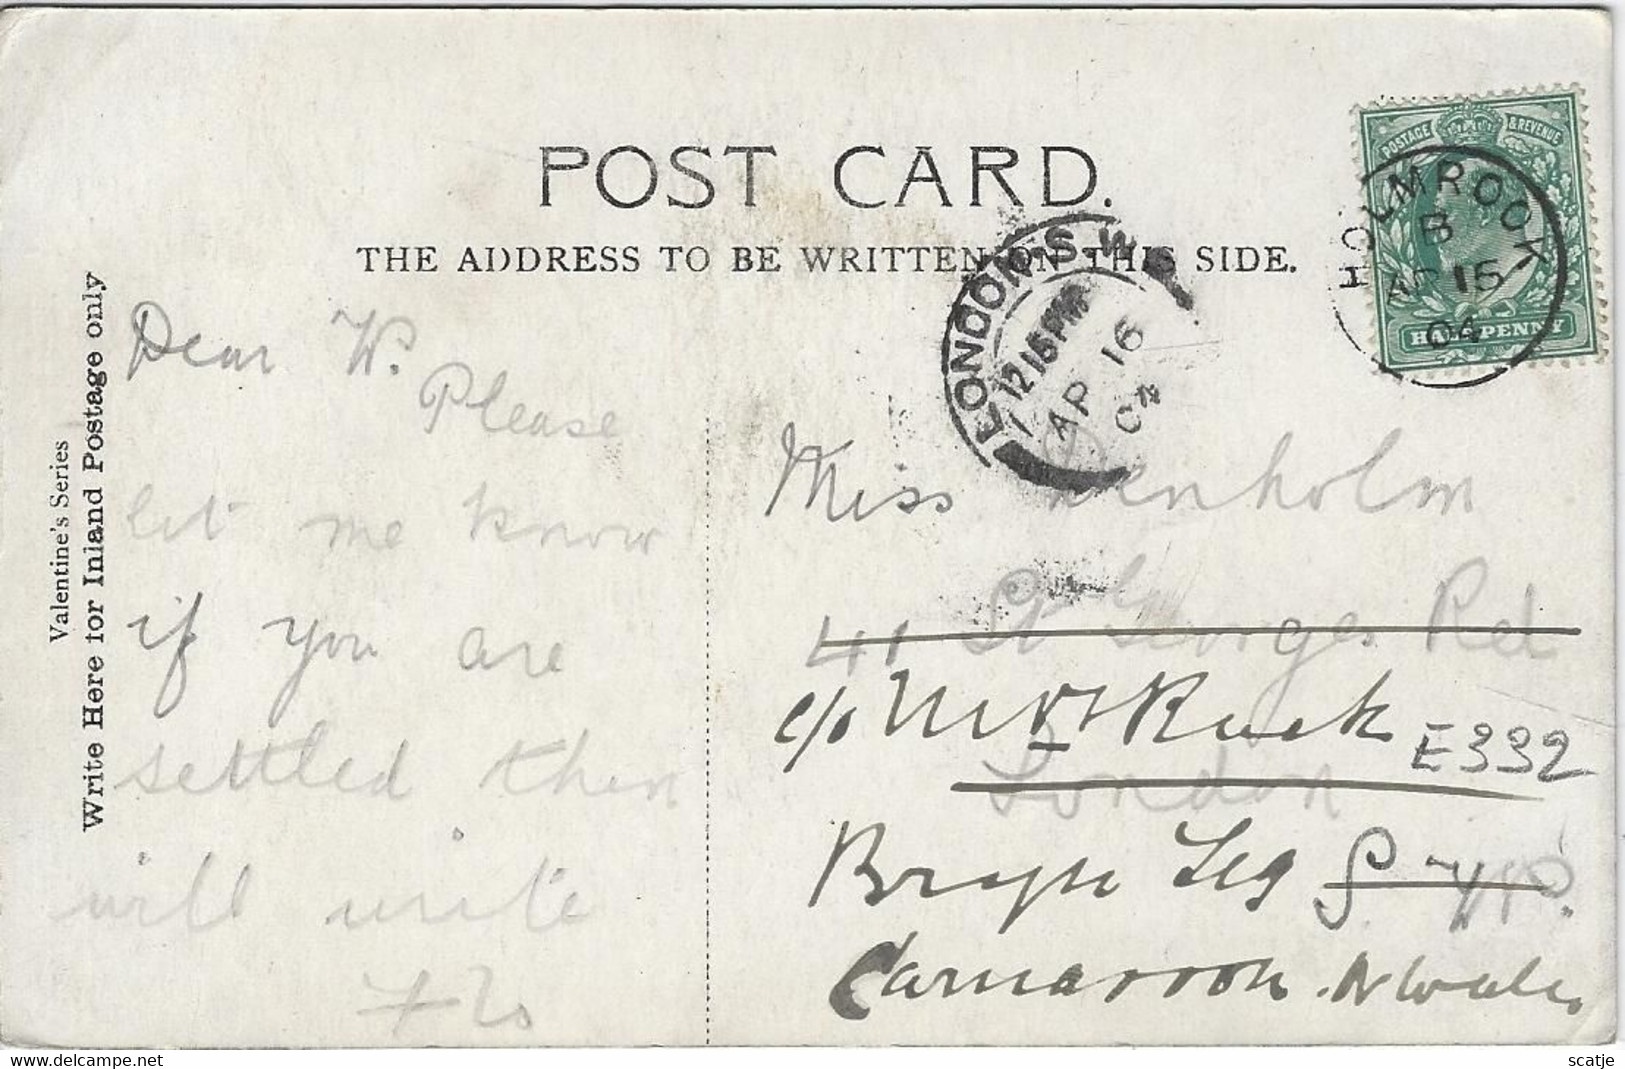 POST CARD.
THE ADDRESS TO BE WRITTEN ON THIS SIDE.
Valentine's Series
Write Here for Inland Postage only
POSTAGE & REVENUE
HALFPENNY
HOLMROOK
B
AP 15
04
LONDON. S.W.
12 15 PM
AP 16
04
Dear W.
Please
let me know
if you are
settled then
will write
Miss Denholm
41 St Georges Rd
c/o Mrs Ruck
E332
London
S.W.
Carnarvon. N Wales
www.delcampe.net
scatje